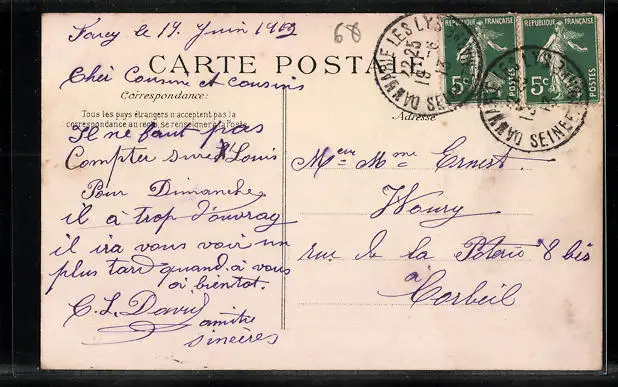 Farcy le 19 Juin 1913
68
Chèr Cousine et cousins
CARTE POSTALE
Correspondance:
Tous les pays étrangers n'acceptent pas la
correspondance au recto, se renseigner à la Poste
Adresse
Il ne faut pas
Compter sure Louis
Pour Dimanche
il à trop d'ouvray
il ira vous voir un
plus tard quand, à vous
à bientot.
C. L. David
amitié
sincères
Meur Mme Ernest
Woury
rue de la Poterie 8 bis
à
Corbeil
REPUBLIQUE FRANÇAISE
5c
POSTES
REPUBLIQUE FRANÇAISE
5c
POSTES
DAMMARIE LES LYS
SEINE
DAMMARIE LES LYS
SEINE